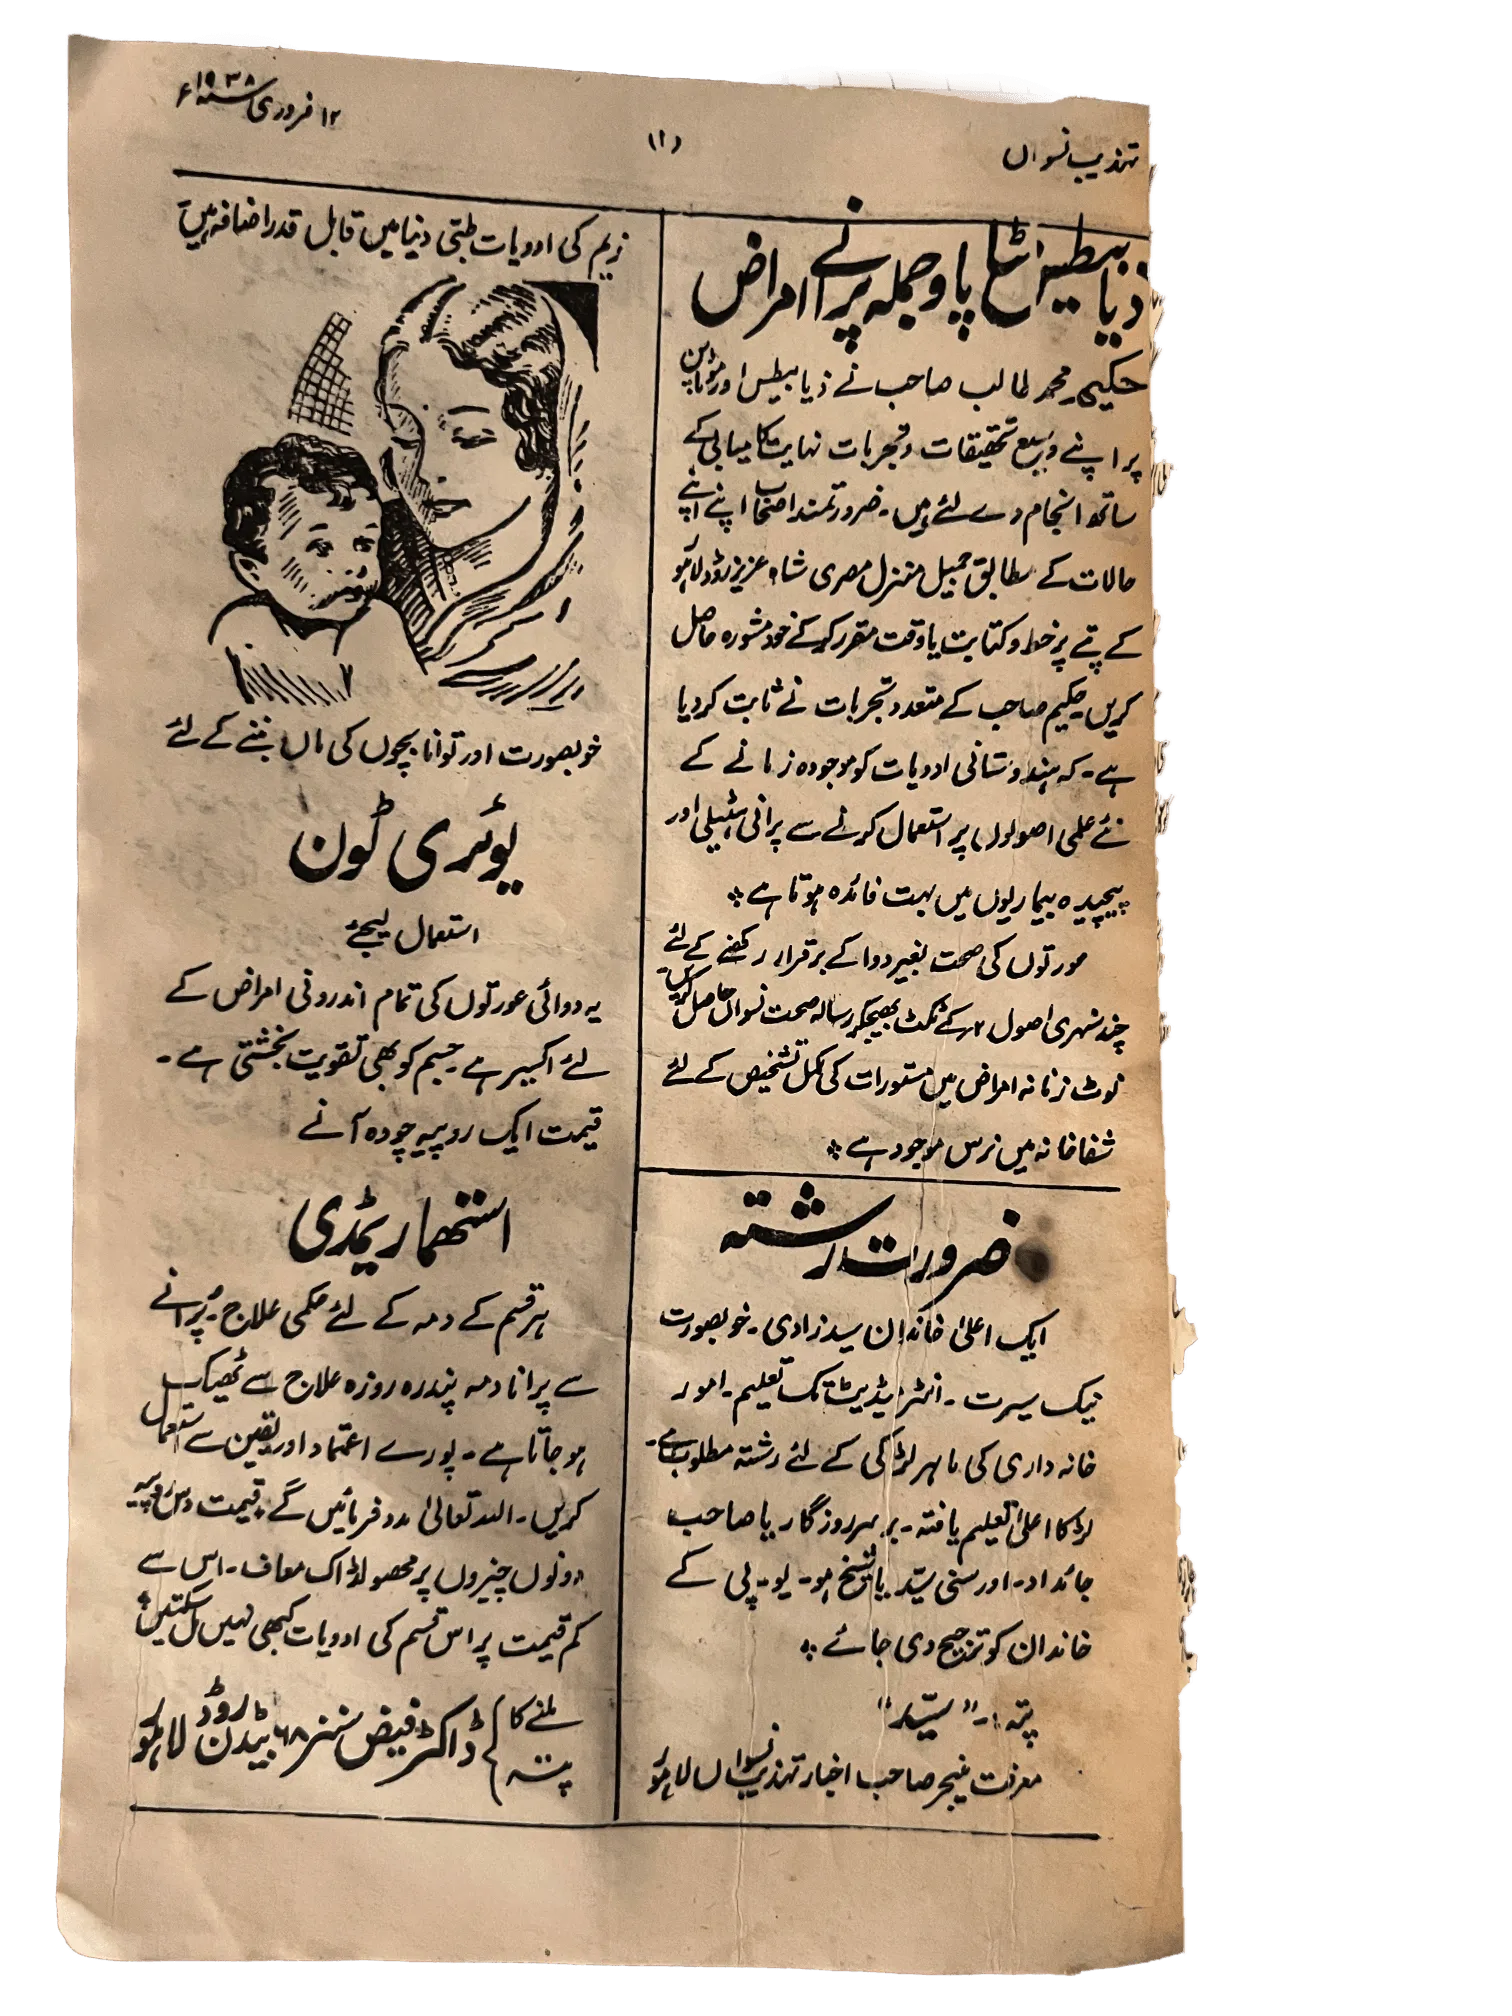 تہذیب نسواں
(۱)
۱۲ فروری ۱۹۳۸ء
ذیابیطس موٹاپا و جملہ پرانے امراض
حکیم محمد طالب صاحب نے ذیابیطس اور موٹاپے
پر اپنے وسیع تحقیقات و تجربات نہایت کامیابی کے
ساتھ انجام دے لئے ہیں۔ ضرورتمند اصحاب اپنے اپنے
حالات کے مطابق جمیل منزل مصری شاہ عزیز روڈ لاہور
کے پتے پر خط و کتابت یا وقت مقرر کرکے خود مشورہ حاصل
کریں۔ حکیم صاحب کے متعدد تجربات نے ثابت کردیا
ہے۔ کہ ہندوستانی ادویات کو موجودہ زمانے کے
نئے علمی اصولوں پر استعمال کرنے سے پرانی ہٹیلی اور
پیچیدہ بیماریوں میں بہت فائدہ ہوتا ہے ٭
عورتوں کی صحت بغیر دوا کے برقرار رکھنے کے لئے
چند سنہری اصول ۲؍ کے ٹکٹ بھیجکر رسالہ صحت نسواں حاصل کریں۔
نوٹ زنانہ امراض میں مستورات کی مکمل تشخیص کے لئے
شفاخانہ میں نرس موجود ہے ٭
ضرورت رشتہ
ایک اعلیٰ خاندان سید زادی۔ خوبصورت
نیک سیرت۔ انٹرمیڈیٹ تک تعلیم۔ امور
خانہ داری کی ماہر لڑکی کے لئے رشتہ مطلوب ہے۔
لڑکا اعلیٰ تعلیم یافتہ۔ برسر روزگار یا صاحب
جائداد۔ اور سنی سیّد یا شیخ ہو۔ یو۔ پی کے
خاندان کو ترجیح دی جائے ٭
پتہ:۔ "سیّد"
معرفت منیجر صاحب اخبار تہذیب نسواں لاہور
زیم کی ادویات طبّی دنیا میں قابل قدر اضافہ ہیں
خوبصورت اور توانا بچوں کی ماں بننے کے لئے
یوٹری ٹون
استعمال کیجئے
یہ دوائی عورتوں کی تمام اندرونی امراض کے
لئے اکسیر ہے۔ جسم کو بھی تقویت بخشتی ہے۔
قیمت ایک روپیہ چودہ آنے
استھما ریمڈی
ہر قسم کے دمہ کے لئے حکمی علاج۔ پُرانے
سے پرانا دمہ پندرہ روزہ علاج سے ٹھیک
ہو جاتا ہے۔ پورے اعتماد اور یقین سے استعمال
کریں۔ اللہ تعالیٰ مدد فرمائیں گے۔ قیمت دس روپیہ
دونوں چیزوں پر محصولڈاک معاف۔ اس سے
کم قیمت پر اس قسم کی ادویات کبھی نہیں مل سکتیں ٭
ملنے کا پتہ } ڈاکٹر فیض سنز ۶۸ بیڈن روڈ لاہور